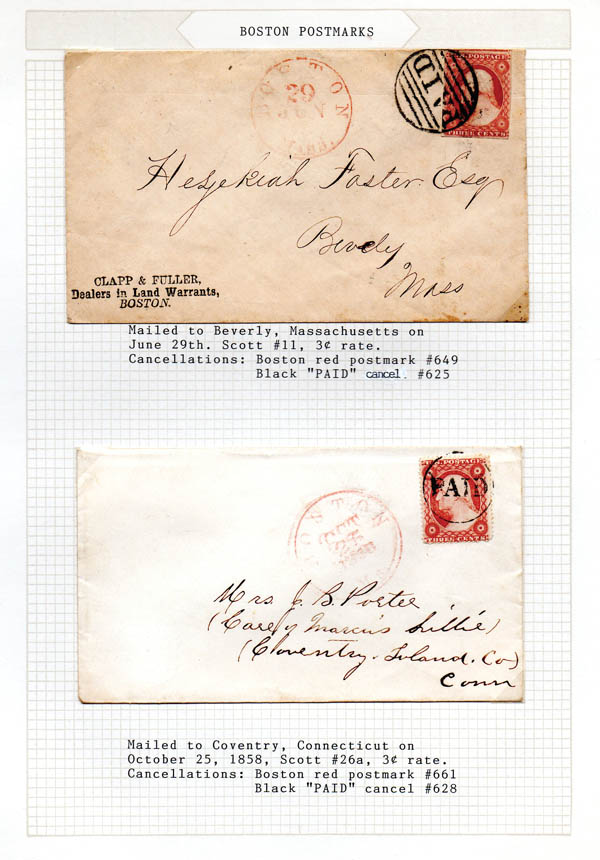 BOSTON POSTMARKS
BOSTON
29
JUN
MASS.
PAID
THREE CENTS
Hezekiah Foster Esq
Beverly
Mass
CLAPP & FULLER,
Dealers in Land Warrants,
BOSTON.
Mailed to Beverly, Massachusetts on
June 29th. Scott #11, 3¢ rate.
Cancellations: Boston red postmark #649
Black "PAID" cancel. #625
U.S. POSTAGE
PAID
THREE CENTS
BOSTON
OCT
Mrs. J. B. Porter
(Care of Marcus Lillie)
(Coventry. Toland. Co)
Conn
Mailed to Coventry, Connecticut on
October 25, 1858, Scott #26a, 3¢ rate.
Cancellations: Boston red postmark #661
Black "PAID" cancel #628